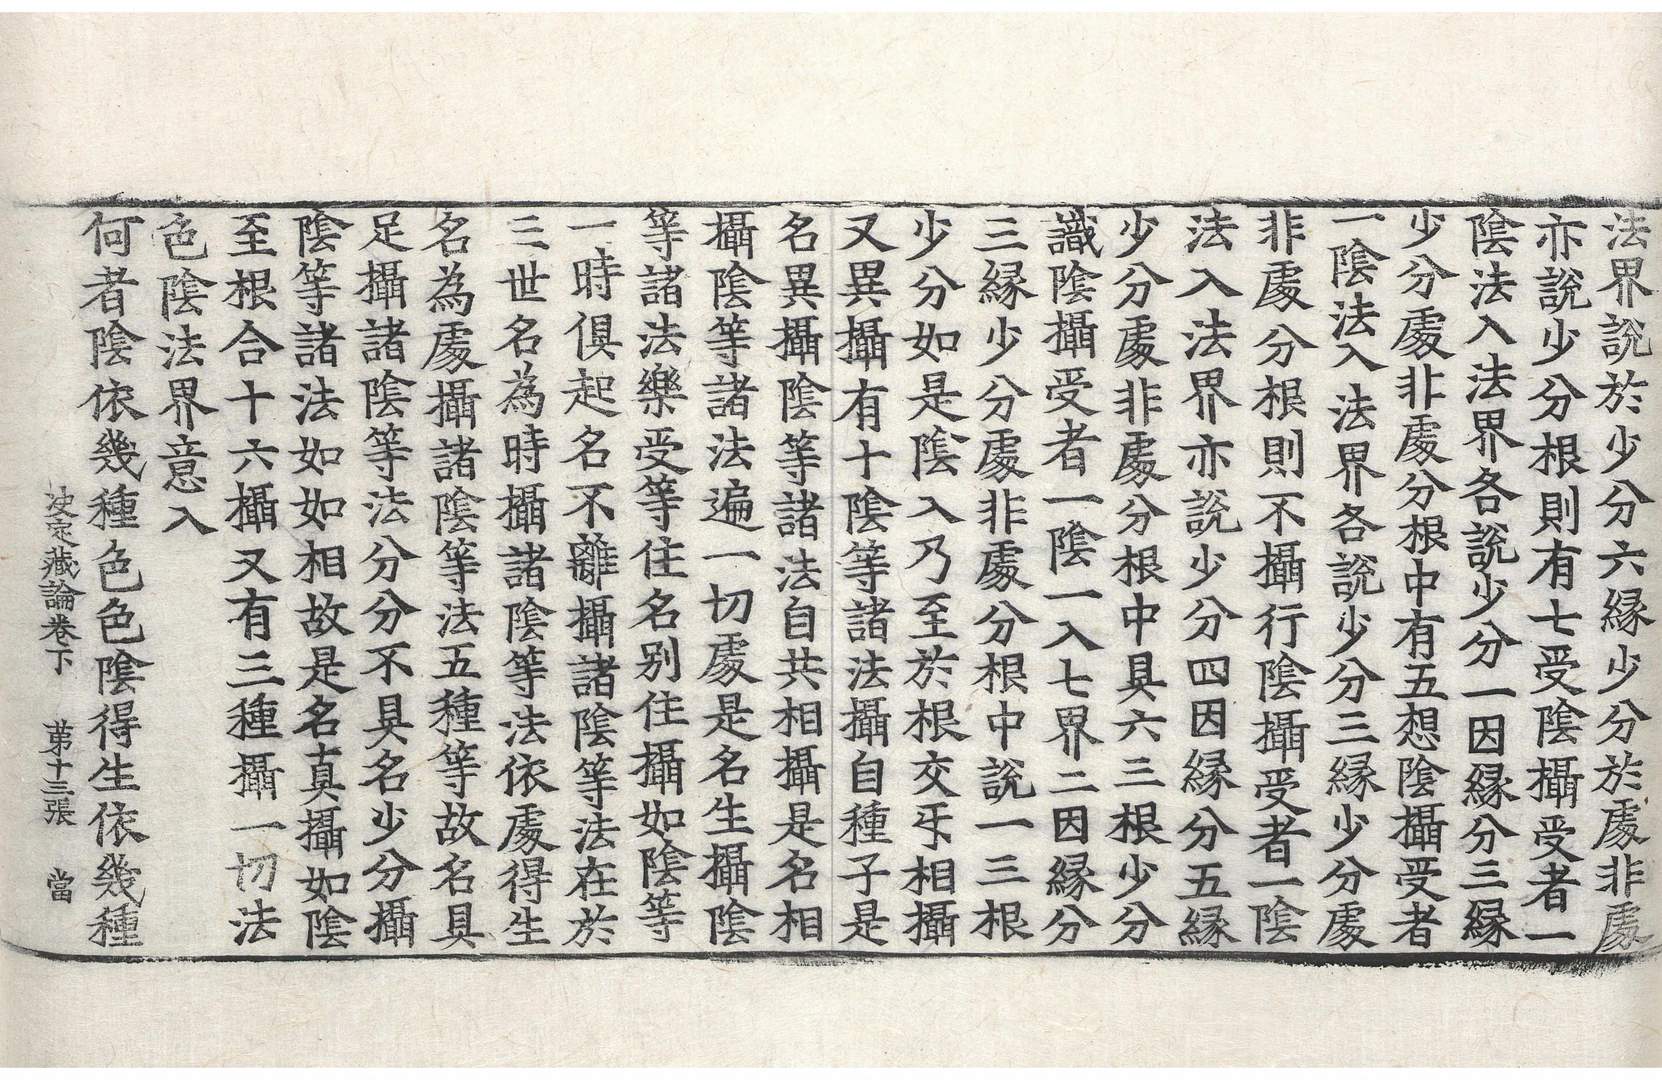 法界說於少分六縁少分於處非處
亦說少分根則有七受陰攝受者一
陰法入法界各說少分一因縁分三縁
少分處非處分根中有五想陰攝受者
一陰法入法界各說少分三縁少分處
非處分根則不攝行陰攝受者一陰
法入法界亦說少分四因縁分五縁
少分處非處分根中具六三根少分
識陰攝受者一陰一入七界二因縁分
三縁少分處非處分根中說一三根
少分如是陰入乃至於根交㸦相攝
又異攝有十陰等諸法攝自種子是
名異攝陰等諸法自共相攝是名相
攝陰等諸法遍一切處是名生攝陰
等諸法樂受等住名别住攝如陰等
一時俱起名不離攝諸陰等法在於
三世名為時攝諸陰等法依處得生
名為處攝諸陰等法五種等故名具
足攝諸陰等法分分不具名少分攝
陰等諸法如如相故是名真攝如陰
至根合十六攝又有三種攝一切法
色陰法界意入
何者陰依幾種色色陰得生依幾種
決定藏論卷下 第十三張 當